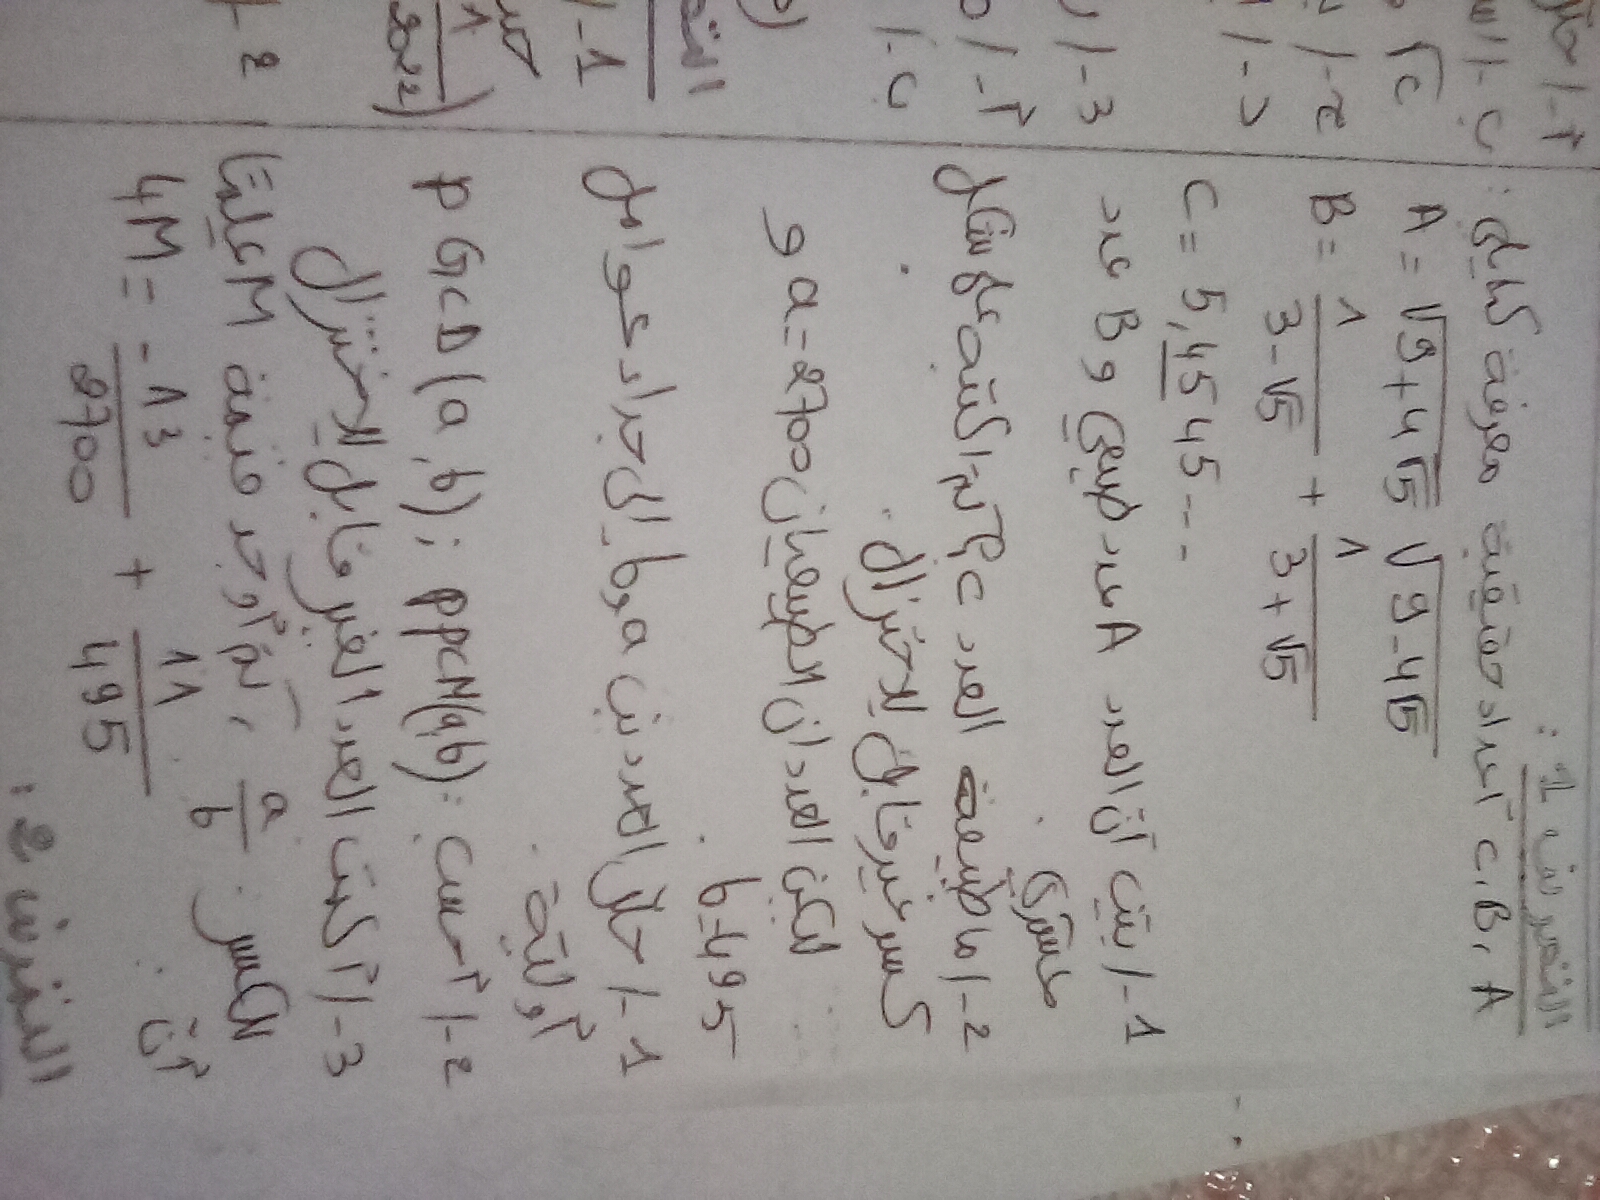 التمرين 1 :
A ، B ، C أعداد حقيقية معرفة كمايلي :
A = √9+4√5 √9-4√5
B = 1/(3-√5) + 1/(3+√5)
C = 5,4545...
1-/ بيّن أنّ العدد A عدد طبيعي و B عدد
عشري .
2-/ ما طبيعة العدد C ثم اكتبه على شكل
كسر غير قابل للاختزال .
ليكن العددان الطبيعيان a = 2700 و
b = 495 .
1-/ حلّل العددين a و b إلى جداء عوامل
أولية .
2-/ أحسب PGCD(a,b) ; PPCM(a,b) :
3-/ أكتب العدد الغير قابل للاختزال
للكسر a/b ، ثم أوجد قيمة M علما
أنّ : 4M = -13/2700 + 11/495
التمرين 2 :